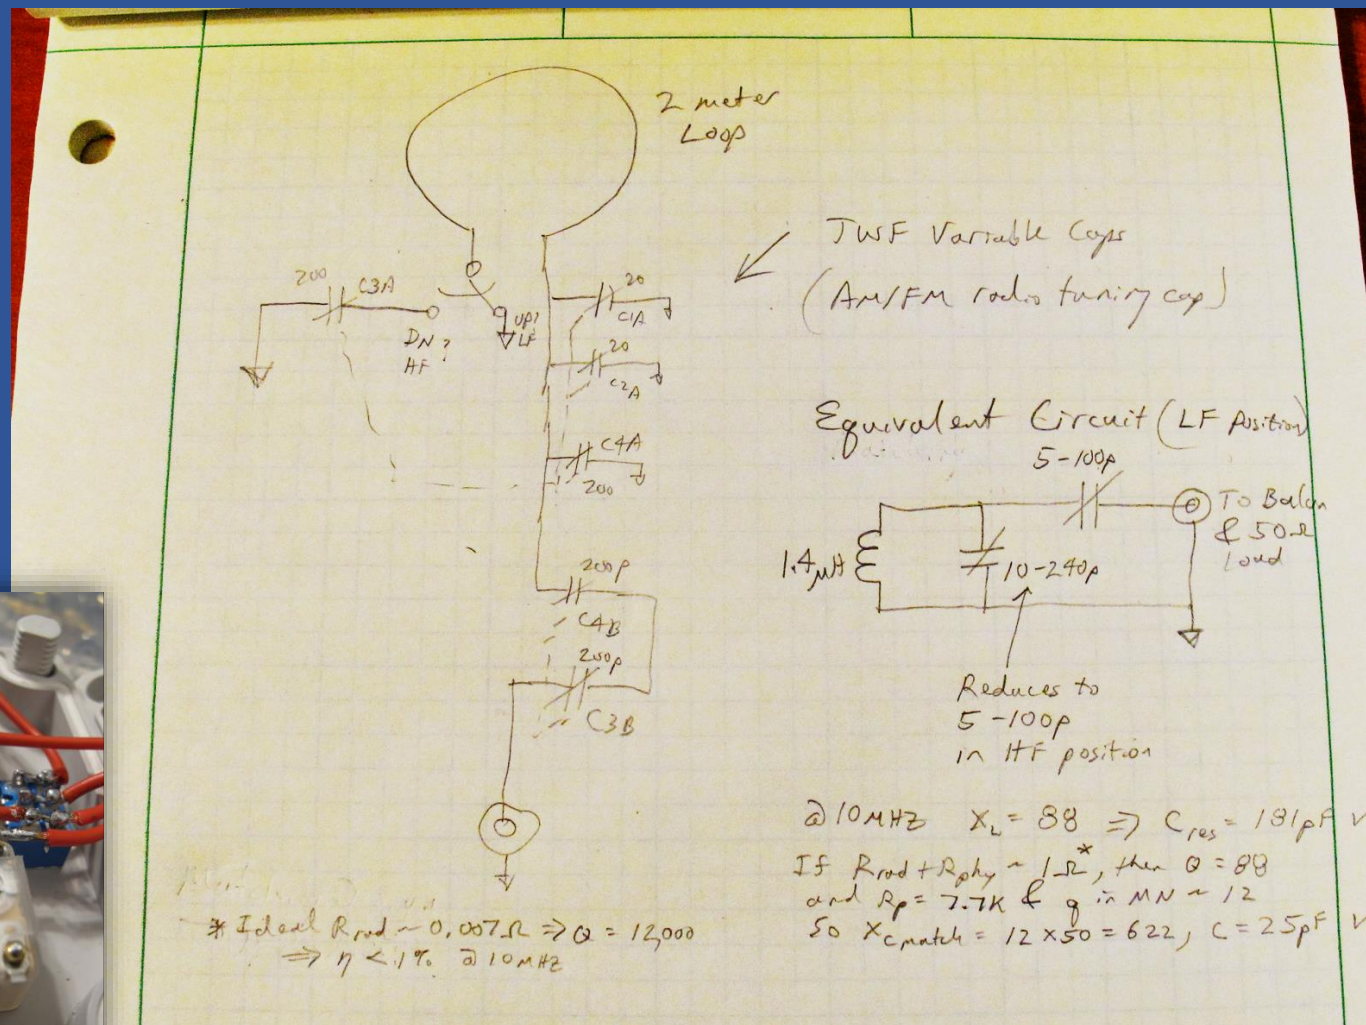 2 meter
Loop
TWF Variable Caps
(AM/FM radio tuning cap)
200
C3A
DN?
HF
UP?
LF
20
C1A
20
C2A
C4A
200
200p
C4B
200p
C3B
Equivalent Circuit (LF position)
5-100p
To Balun
& 50Ω
load
1.4μH
10-240p
Reduces to
5-100p
in HF position
@10MHz XL = 88 ⇒ Cres = 181pF
If Rrad + Rphy ~ 1Ω*, then Q = 88
and Rp = 7.7K & q in MN ~ 12
So Xcmatch = 12 x 50 = 622, C = 25pF
* Ideal Rrad ~ 0.007Ω ⇒ Q = 12,000
⇒ η < .1% @10MHz